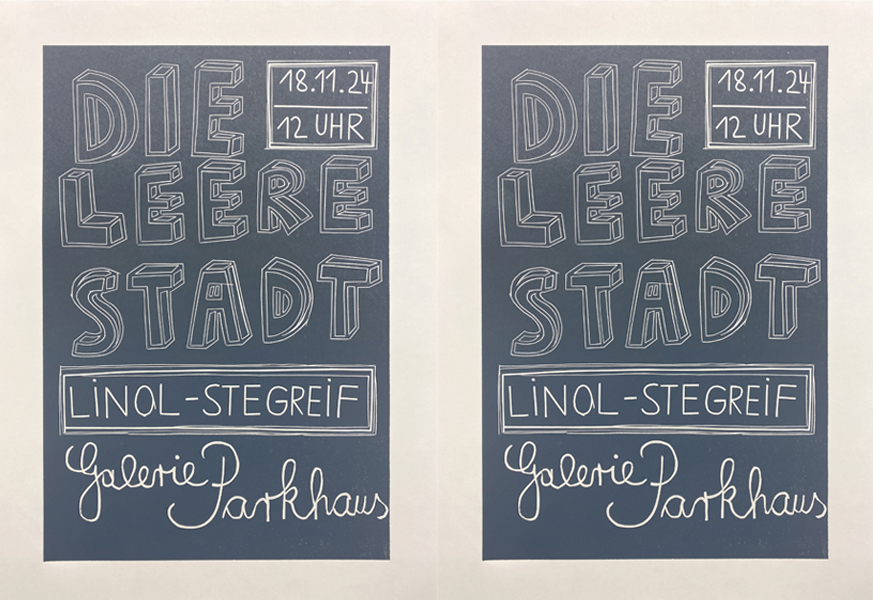 DIE
18.11.24
12 UHR
LEERE
STADT
LINOL-STEGREIF
Galerie Parkhaus
DIE
18.11.24
12 UHR
LEERE
STADT
LINOL-STEGREIF
Galerie Parkhaus